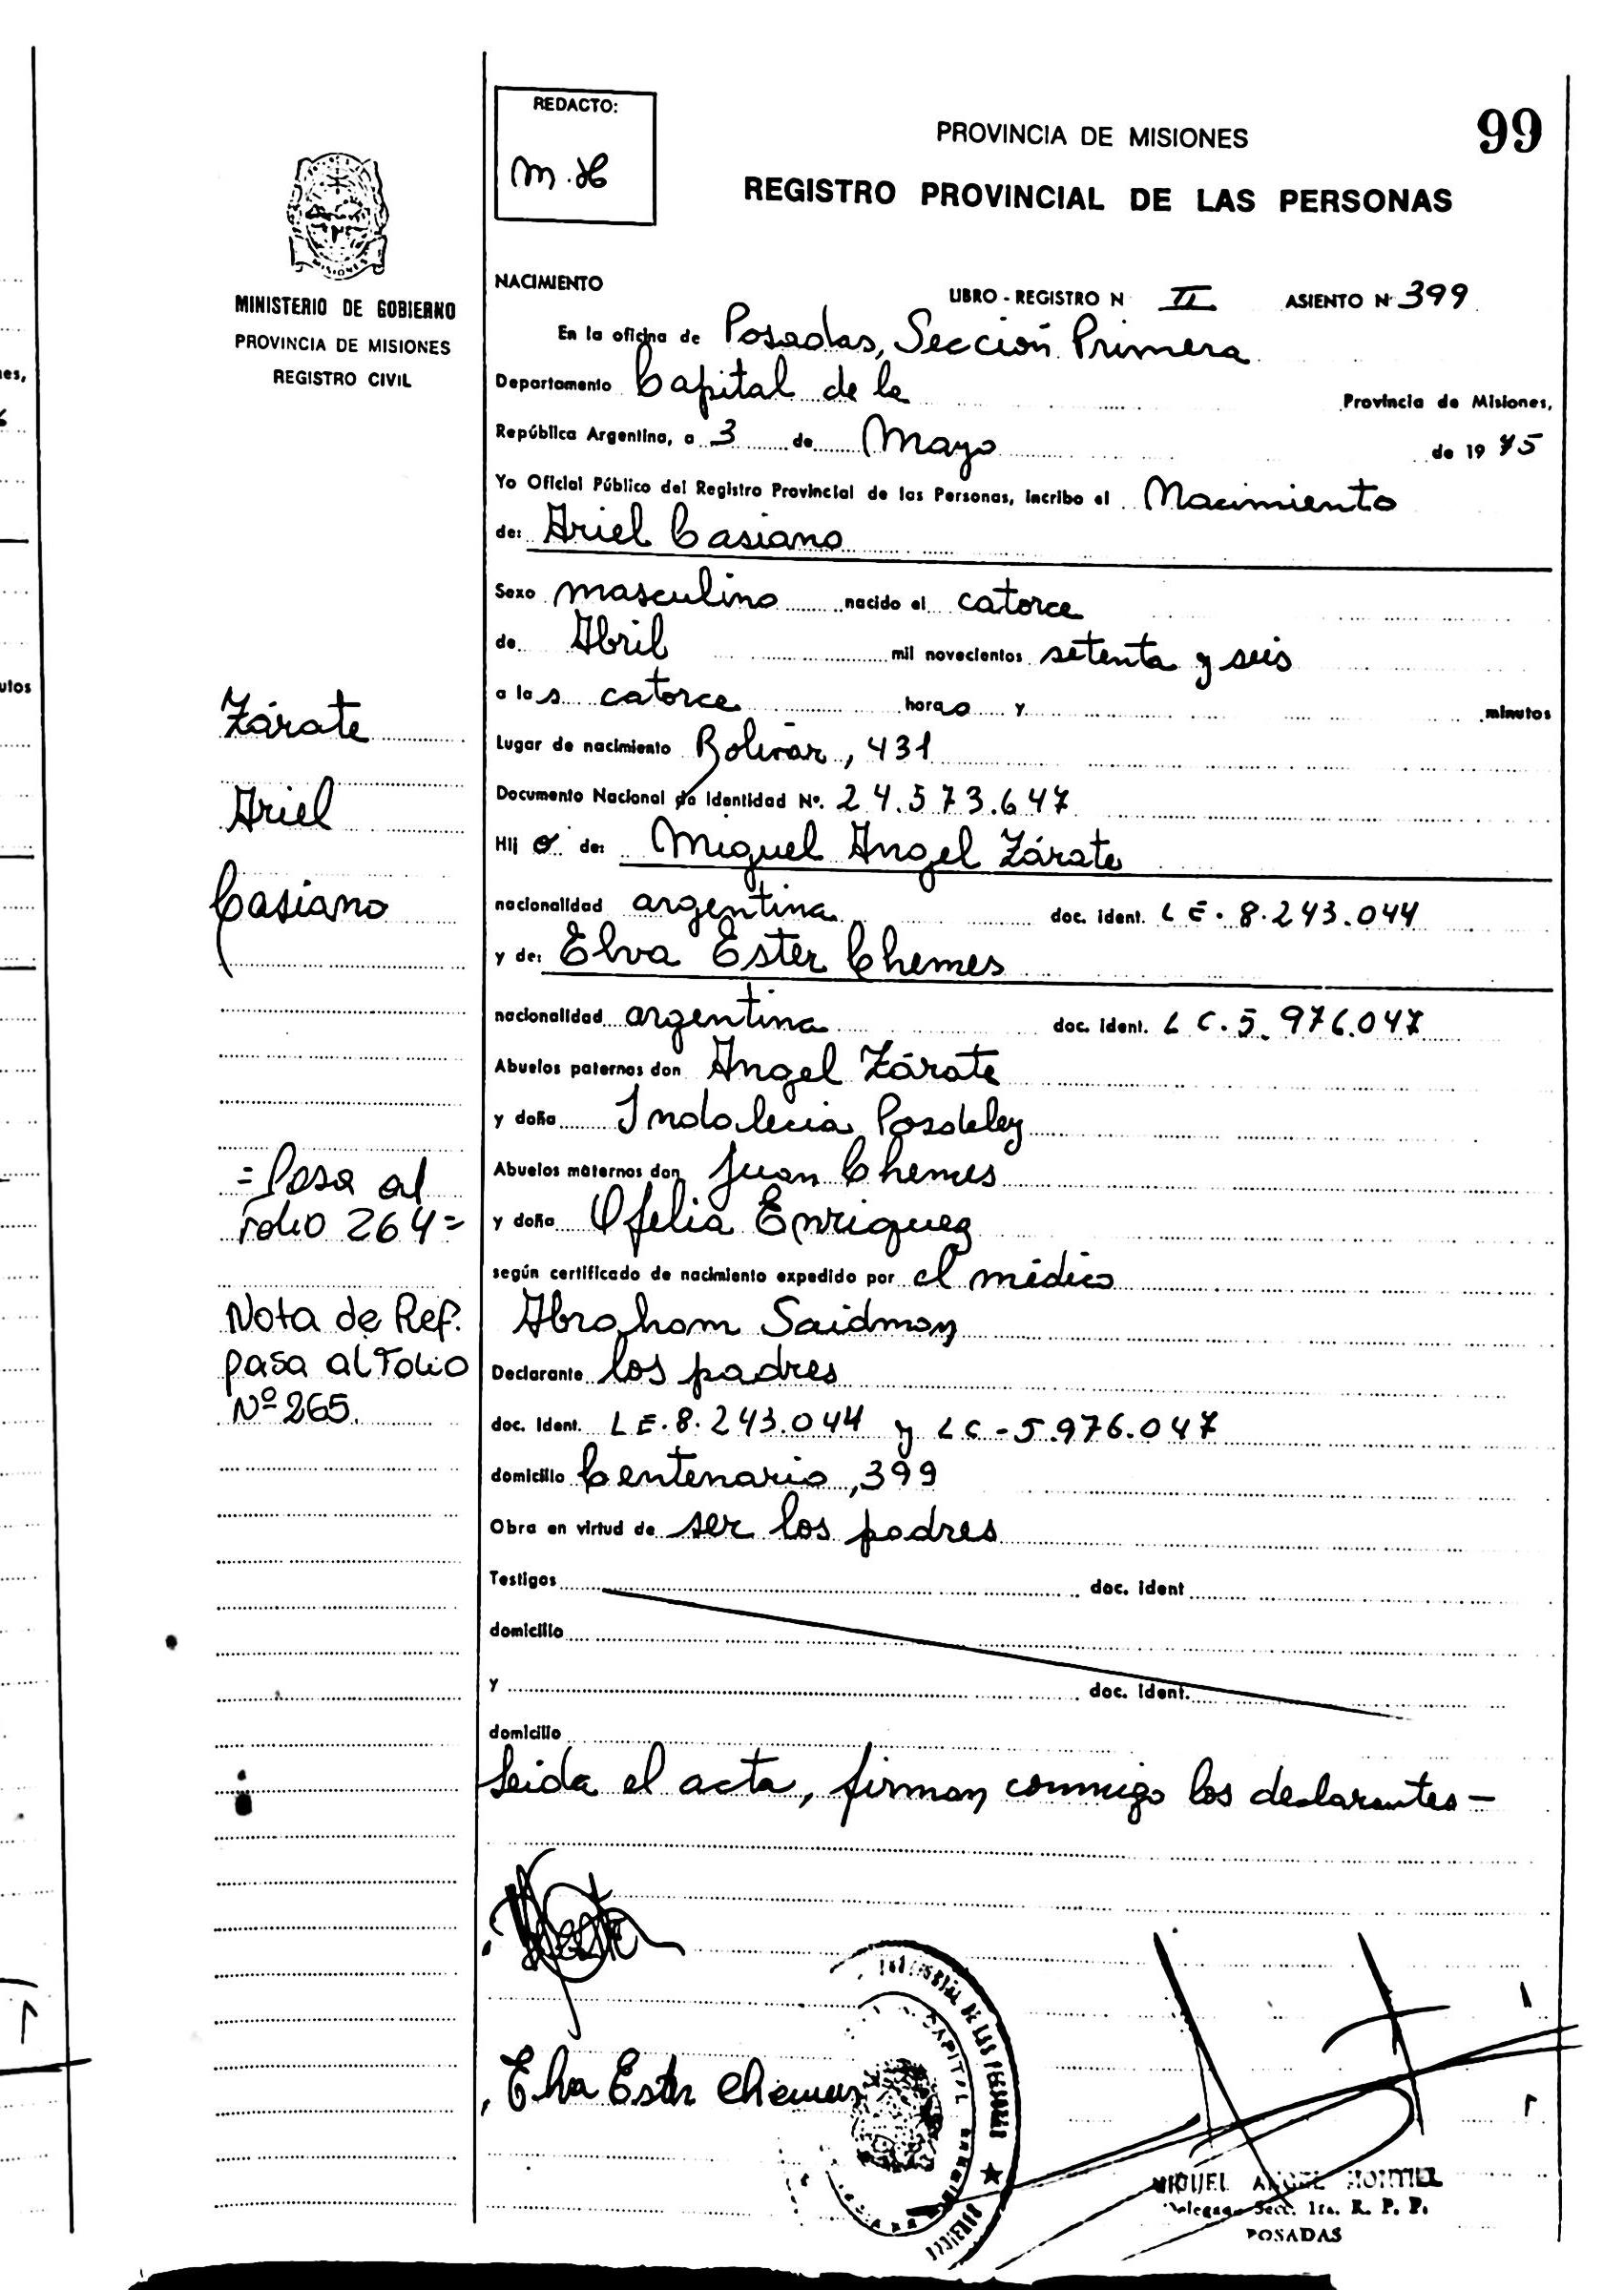 REDACTO:
M.H
PROVINCIA DE MISIONES
99
REGISTRO PROVINCIAL DE LAS PERSONAS
MISIONES
MINISTERIO DE GOBIERNO
PROVINCIA DE MISIONES
REGISTRO CIVIL
NACIMIENTO
LIBRO - REGISTRO N II ASIENTO Nº 399
En la oficina de Posadas, Sección Primera
Departamento Capital de la Provincia de Misiones,
República Argentina, a 3 de Mayo de 19 75
Yo Oficial Público del Registro Provincial de las Personas, incribo el Nacimiento
de: Ariel Casiano
Sexo masculino nacido el catorce
de Abril mil novecientos setenta y seis
a las catorce horas y minutos
Lugar de nacimiento Bolívar, 431
Documento Nacional de Identidad Nº. 24.573.647
Hij o de: Miguel Angel Zárate
nacionalidad argentina doc. ident. L E. 8.243.044
y de: Elva Ester Chemes
nacionalidad argentina doc. ident. L C. 5.976.047
Abuelos paternos don Angel Zárate
y doña Indolecia Posdeley
Abuelos maternos don Juan Chemes
y doña Ofelia Enriquez
según certificado de nacimiento expedido por el médico
Abraham Saidman
Declarante los padres
doc. Ident. L E. 8.243.044 y L C - 5.976.047
domicilio Centenario, 399
Obra en virtud de ser los padres
Testigos doc. ident
domicilio
y doc. ident.
domicilio
Leida el acta, firman conmigo los declarantes -
Zárate
Ariel
Casiano
= Pasa al
Folio 264 =
Nota de Ref.
pasa al Folio
Nº 265.
Elva Ester Chemes
DE LAS PERSONAS
CAPITAL
MIGUEL ANGEL MONTIEL
Delegado Secc. 1ra. R. P. P.
POSADAS
es,
utos